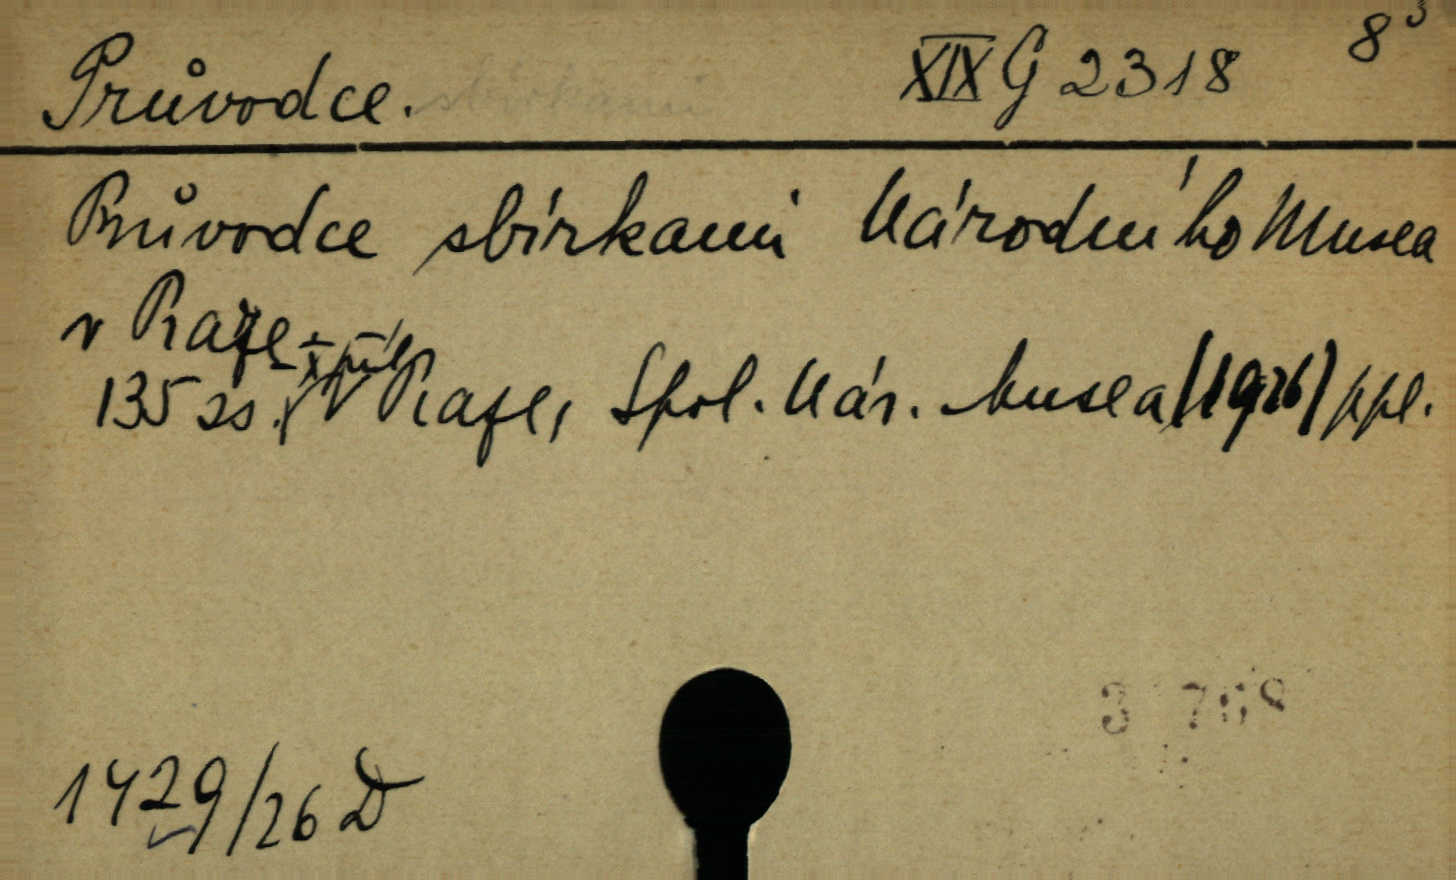 Průvodce. sbírkami XIX G 2318 8°
Průvodce sbírkami Národního Musea
v Praze
135 ss. V Praze, Spol. Nár. Musea (1926) ppl.
1429/26 D